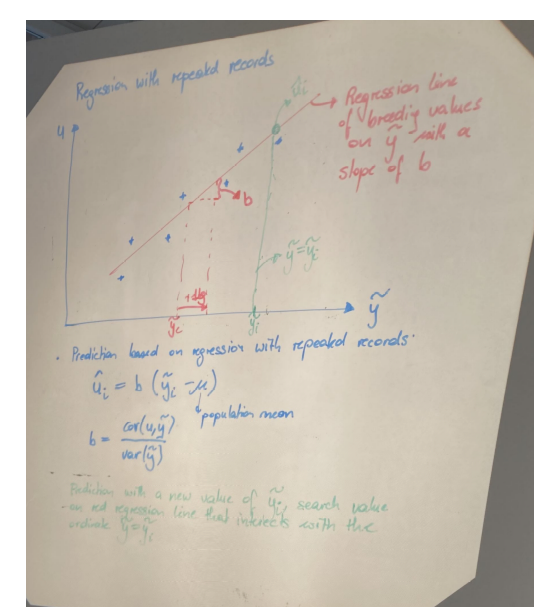 Regression with repeated records
u
û_i
Regression line
of breedig values
on ỹ with a
slope of b
b
ỹ = ỹ_i
+1kg
ỹ_i
ỹ_i
ỹ
· Prediction based on regression with repeated records.
û_i = b (ỹ_i - μ)
population mean
b = cov(u,ỹ)
var(ỹ)
Prediction with a new value of ỹ_i, search value
on red regression line that intersects with the
ordinate ỹ = ỹ_i